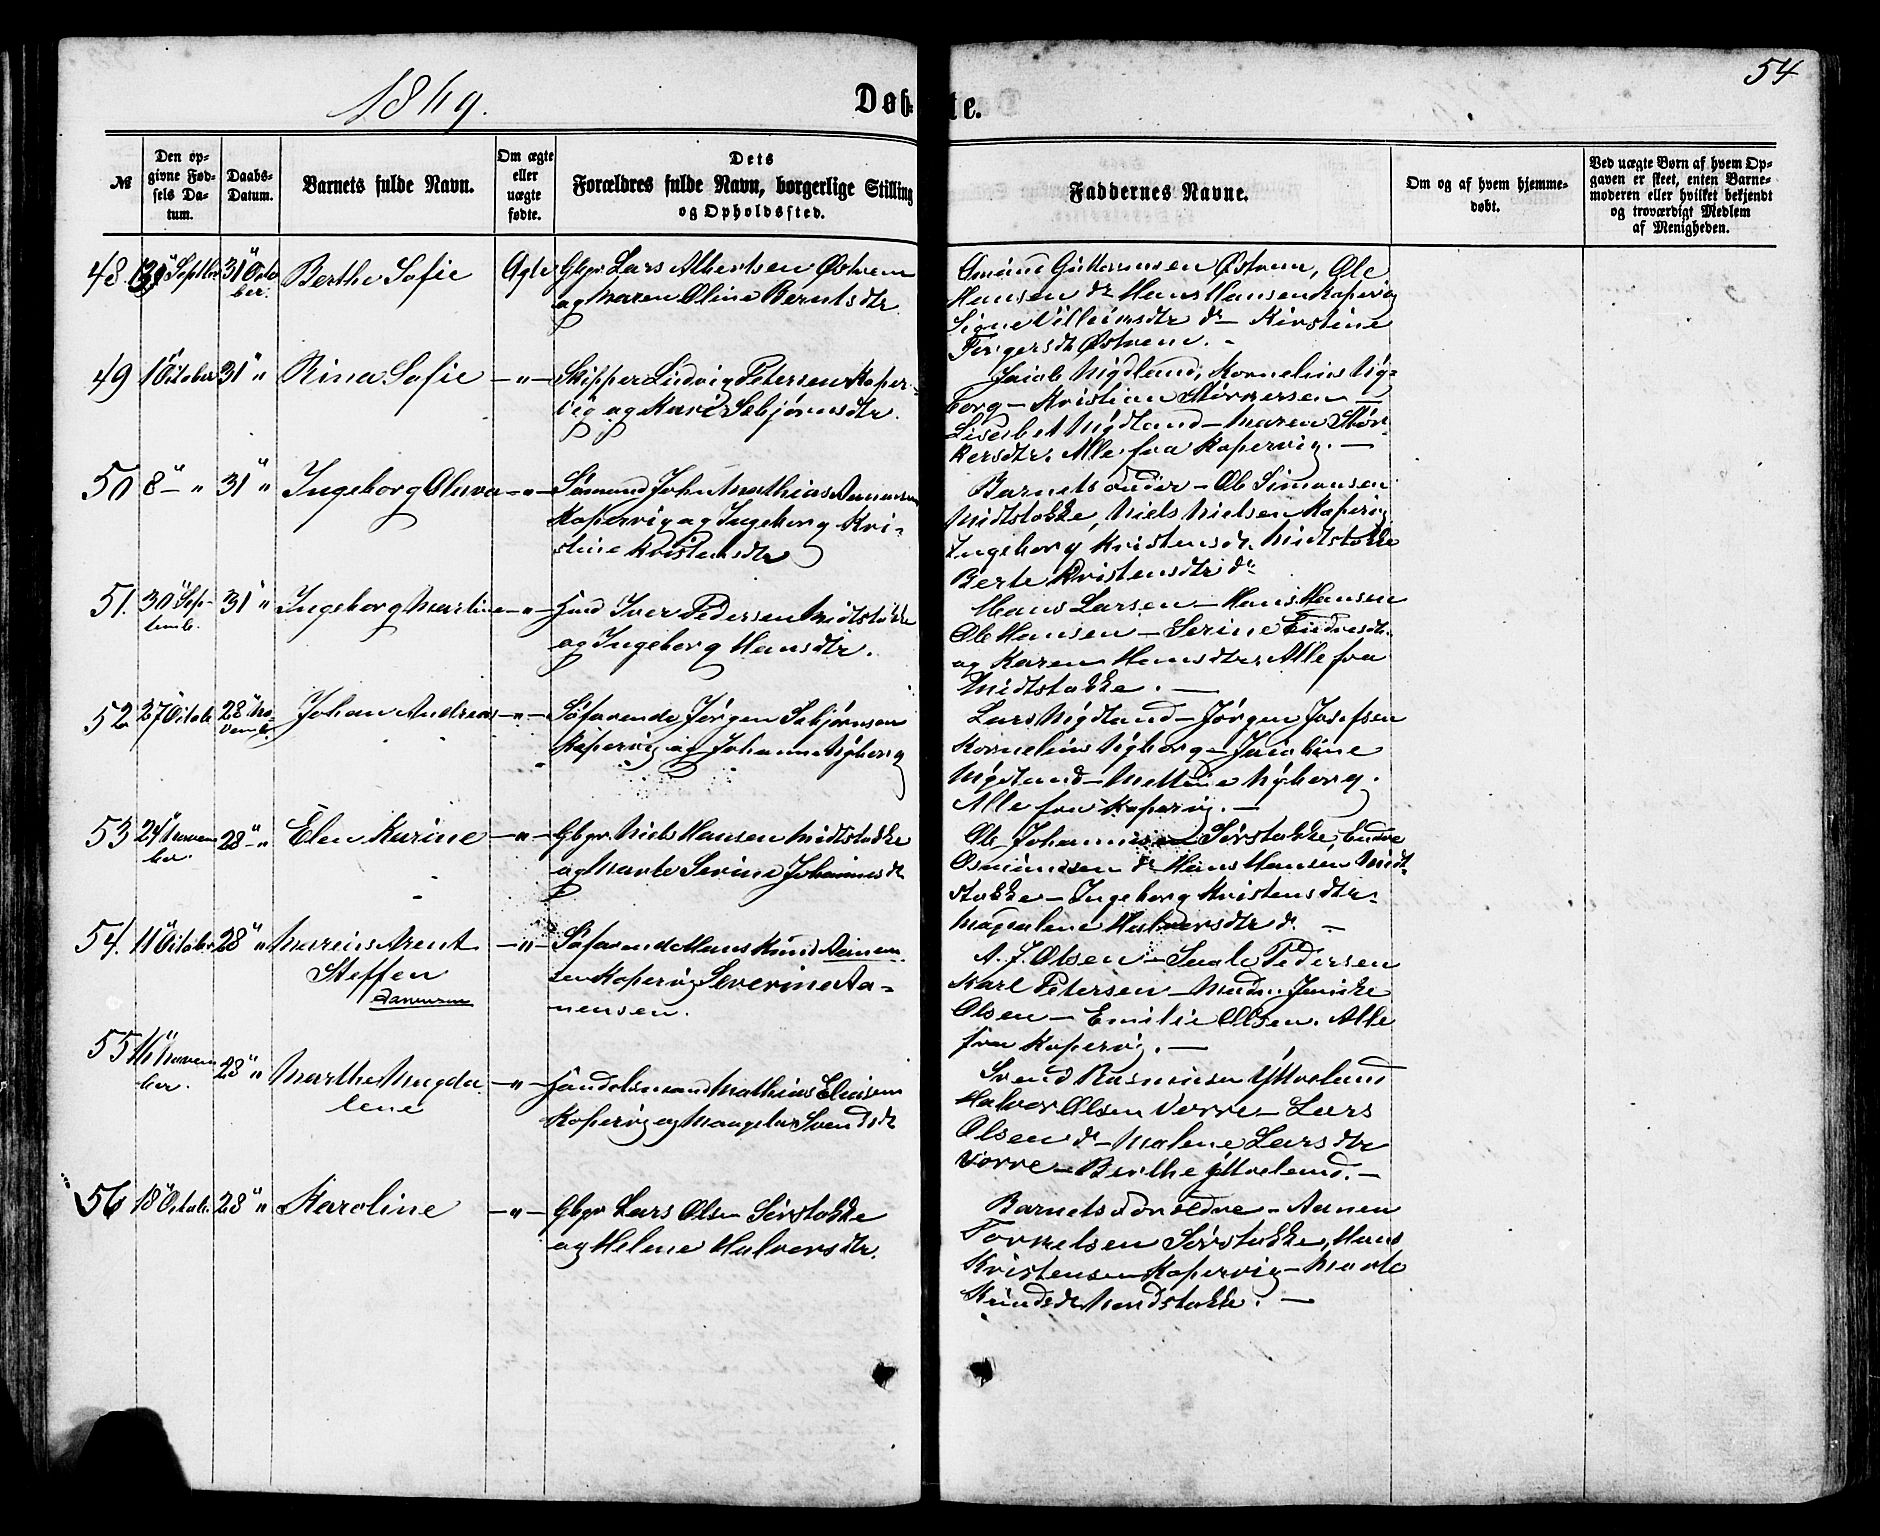 54
1869.
Døbte.
№
Den opgivne Fødsels Datum.
Daabs-Datum.
Barnets fulde Navn.
Om ægte eller uægte fødte.
Dets Forældres fulde Navn, borgerlige Stilling og Opholdssted.
Faddernes Navne.
Om og af hvem hjemmedøbt.
Ved uægte Børn af hvem Opgaven er skeet, enten Barnemoderen eller hvilket bekjendt og troværdigt Medlem af Menigheden.
48 Septbr 31" Octo
ber.
Berthe Sofie
Ægte
Gbgr Lars Albertsen Østrem
og Maren Oline Berntsdtr
Guttormsen Østrem, Ole
Hansen do Hans Hansen Kopervig
Signe Villumsdtr do - Kirstine
Torgersdt Østrem. -
49 1" October 31" "
Rina Sofie
- " -
Skipper Ludvig Petersen Koper-
vig og Kari Sebjørnsdtr.
Jacob Nigdland, Kornelius Nÿ-
borg - Kristian Størkersen -
Lisebet Nigdland - Maren Stør-
kersdtr. Alle fra Kopervig. -
50 8" - " 31" "
Ingeborg Oleva
- " -
Sømand John Mathias Aanensen
Kopervig og Ingeborg Kri-
stine Kristensdtr
Barnets Fader - Ole Simonsen
Midtstokke, Niels Nielsen Kopervig
Ingeborg Kristensdt. Midtstokke
Berte Kristensdtr do
51. 30" Sep-
temb. 31" "
Ingeborg Martine
- " -
Hmd Iver Pedersen Midtstokke
og Ingeborg Hansdtr.
Hans Larsen - Hans Hansen
Ole Hansen - Serine Endresdt.
og Karen Hansdtr. Alle fra
Midtstokke. -
52 27" Octobr 28" No-
vemb.
Johan Andreas
- " -
Søfarende Jørgen Sebjørnsen
Kopervig og Johanne Nÿborg
Lars Nigdland - Jørgen Josefsen
Kornelius Nÿborg - Jacobine
Nigdland - Nÿborg.
Alle fra Kopervig. -
53 24" Novem
ber. 28" - "
Elen Karine
- " -
Gbgr Niels Hansen Midtstokke
og Marte Serine Johannesdt
Ole Johannesen Sørstokke, Endre
Osmundsen do Hans Hansen Midt-
stokke - Ingeborg Kristensdtr.
Magdalene Halversdtr do. -
54. 11" Octobr 28" "
Marius Arent
Steffen
Aanensen
- " -
Søfarende Hans Knud Aanen-
sen Kopervig Severine Aa-
nensen.
A. J. Olsen - Pedersen
Karl Petersen - Mad. Jenicke
Olsen - Emilie Olsen. Alle
fra Kopervig. -
55 16" Novem
ber. 28" "
Marthe Magda
lene
- " -
Handelsmand Mathias Eliasen
Kopervig og Svendsdt
Svend Rasmusen Ÿttreland
Halvor Olsen Vorre - Lars
Olsen do - Malene Larsdtr
Vorre - Berthe Ÿttreland. -
56 18" Octobr 28" "
Karoline
- " -
Gbgr Lars Olsen Sørstokke
og Helene Halversdtr.
Barnets Forældre - Aanen
Tormelsen Sørstokke, Hans
Kristensen Kopervig - Marte
Knudsdt Nordstokke. -